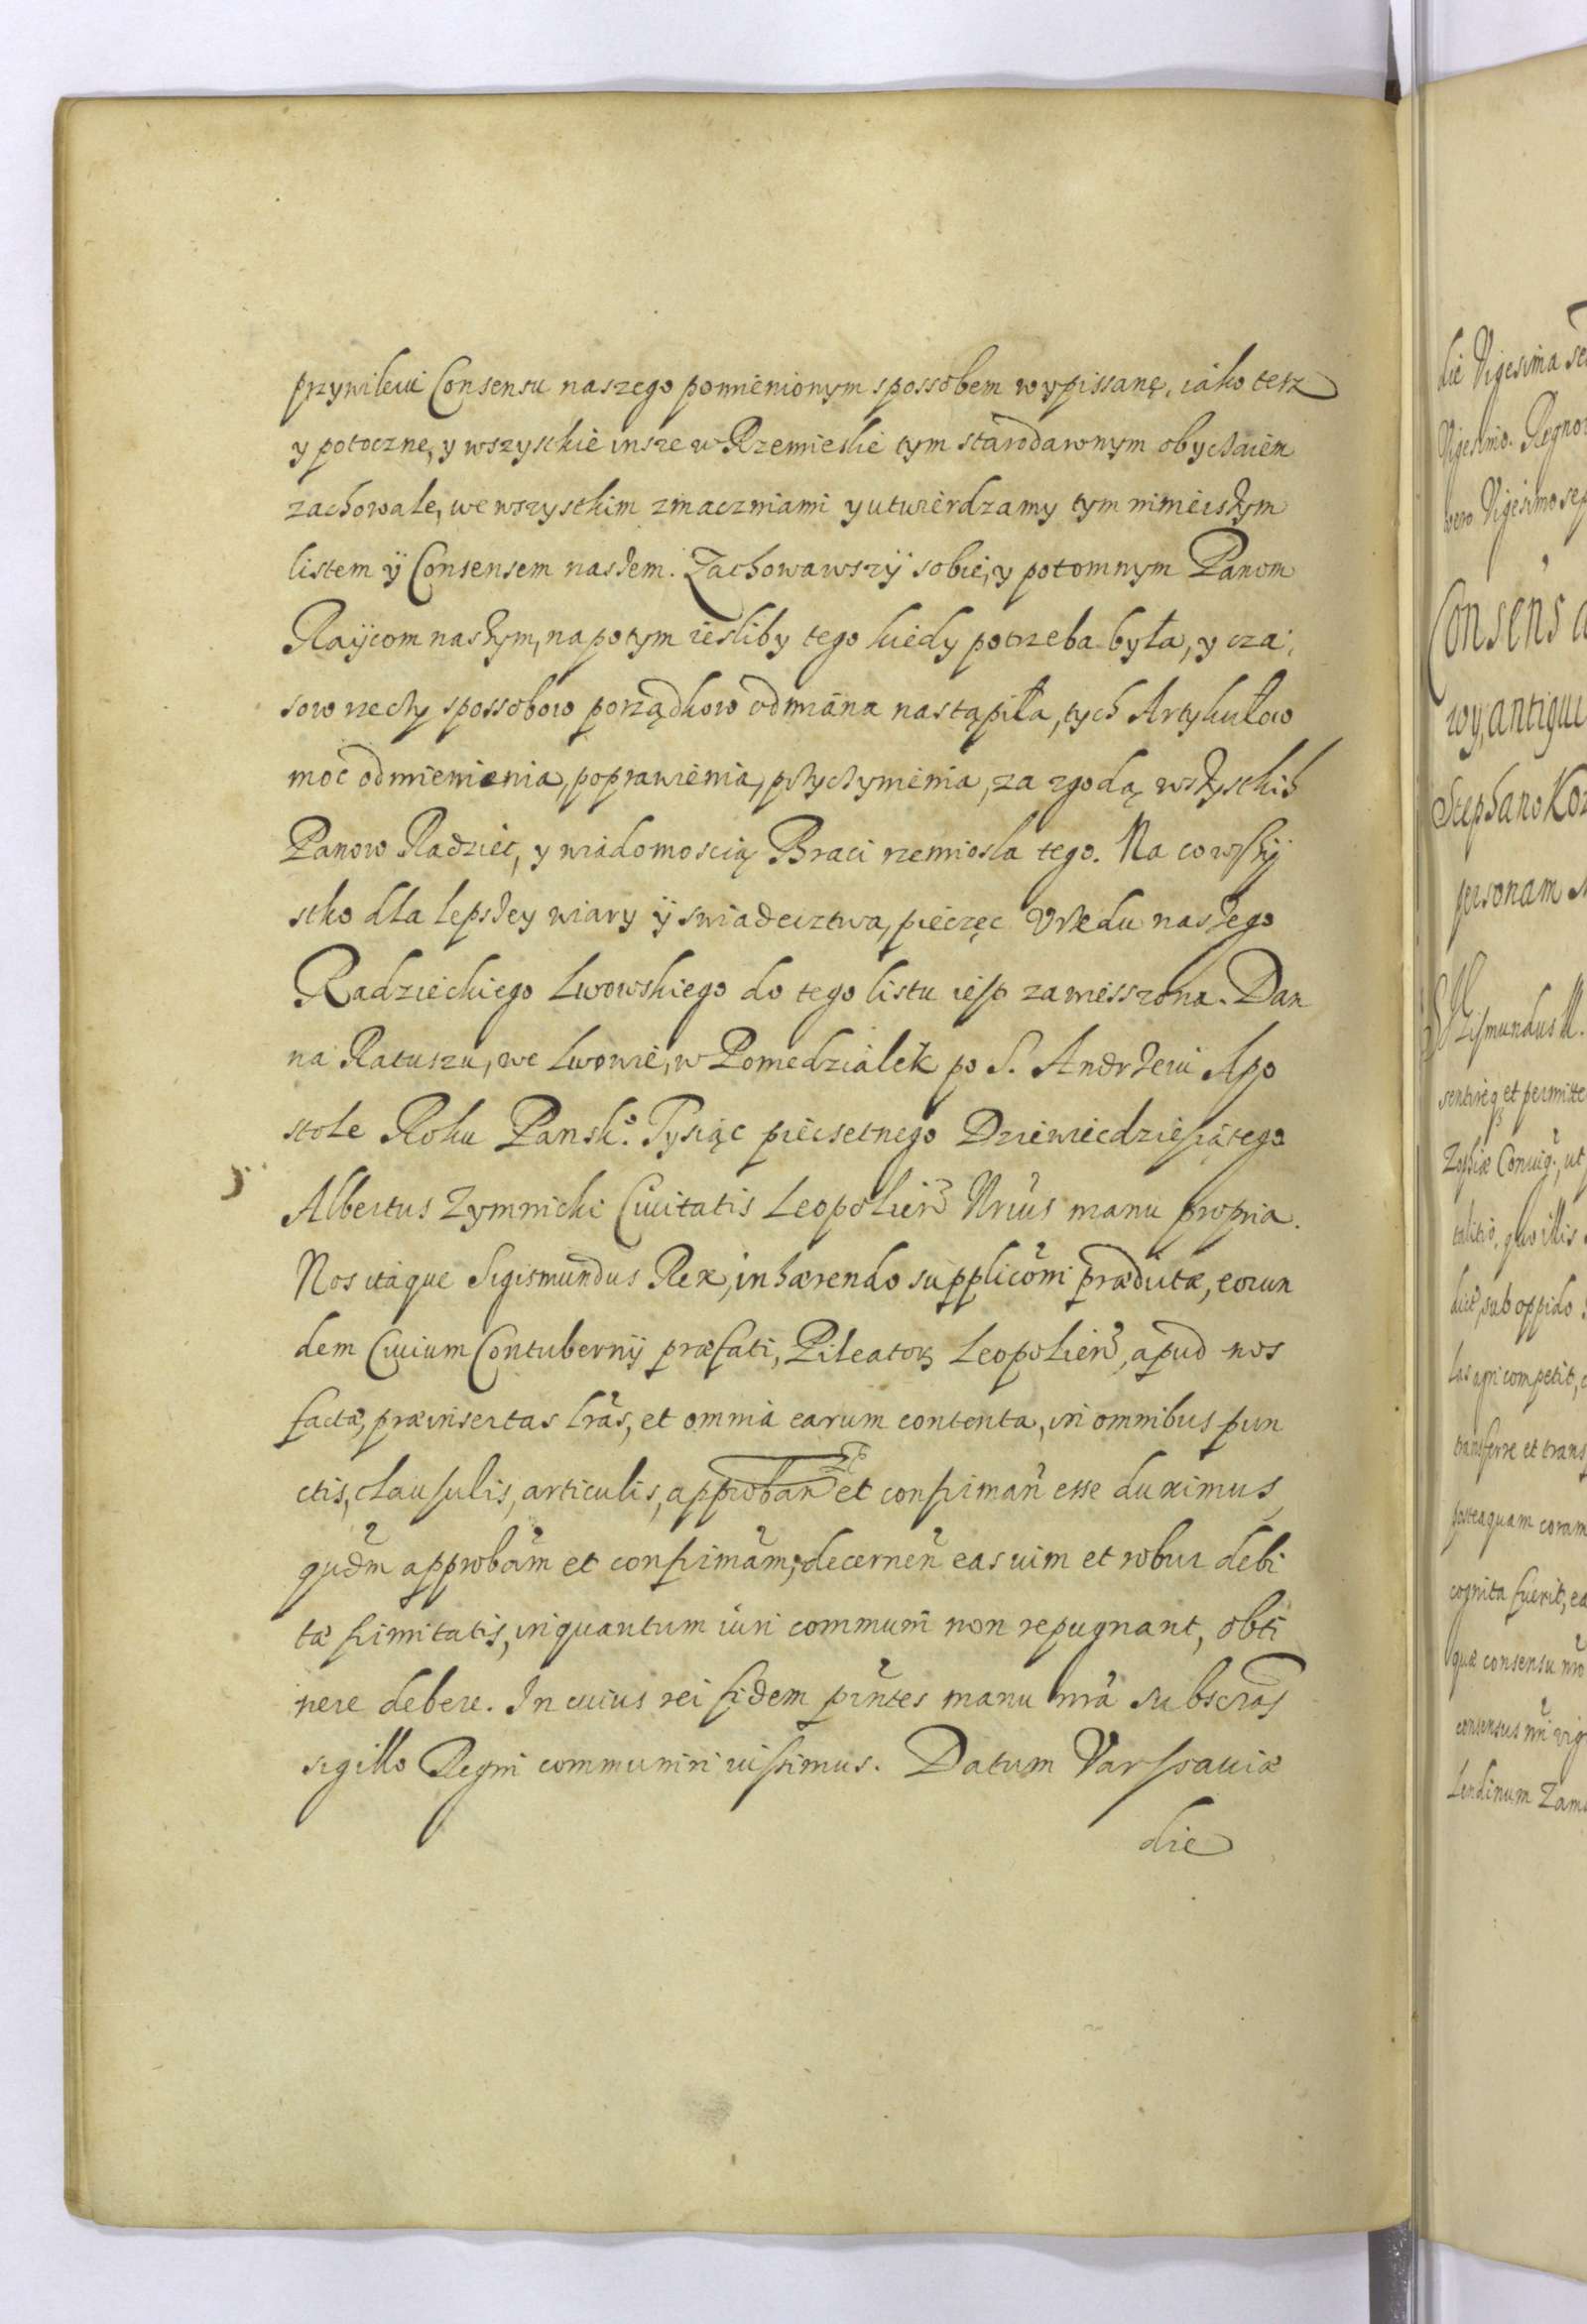 przywileiu Consensu naszego pomienionym spossobem wypissanę, iáko tesz
y potoczne, y wszystkie insze w Rzemieslie tym starodawnym obyczaiem
zachowałe, we wszystkim zmaczniami y utwierdzamy tym ninieiszym
listem ÿ Consensem naszem. Zachowawszÿ sobie, y potomnym Panom
Raÿcom naszym, na potym iesliby tego kiedy potrzeba była, y cza:
sow rzeczy spossobow porządkow odmiana nastąpiła, tych Artykułow
moc odmienienia, poprawienia, przyczynienia, za zgodą wszystkich
Panow Radziec, y wiadomoscią Braci rzemiosla tego. Na co wszÿ
stko dla lepszey wiary ÿ swiadecztwa, pieczęc Vrzedu naszego
Radzieckiego Lwowskiego do tego listu iest zawiesszona. Dan
na Ratuszu, we Lwowie, w Poniedzialek po S. Andrzeiu Apo
stole Roku Pansk.° Tysiąc piecsetnego Dziewiecdziesiątego
Albertus Zymnicki Ciuitatis Leopolien̄ Nrius manu propria.
Nos itaque Sigismundus Rex, inhærendo suppliconi prædictæ, eorun
dem Ciuium Contubernÿ præfati, Pileatoꝝ Leopolien̄, apud nos
factæ, præinsertas lrās, et omnia earum contenta, in omnibus pun
ctis, clausulis, articulis, approban̄ et confirman̄ esse duximus,
qudm̄ approbam̄ et confirmam̄, decernen̄ eas uim et robur debi
tæ firmitatis, inquantum iuri communi non repugnant, obti
nere debere. In cuius rei fidem prn̄tes manu nrā subscrās
sigillo Regni communiri iussimus. Datum Varssauiæ
die
die Vigesima
Vigesimo. Regno
vero Vigesimo sep
Consens
wy, antiqui
Stephano Koz
personam
Sigismundus III.
et permitte
Zophiæ Coniug., ut
quo illis
sub oppido
competit,
transferre et trans
posteaquam coram
cognita fuerit, ea
quæ consensu nrō
consensus nrī vig